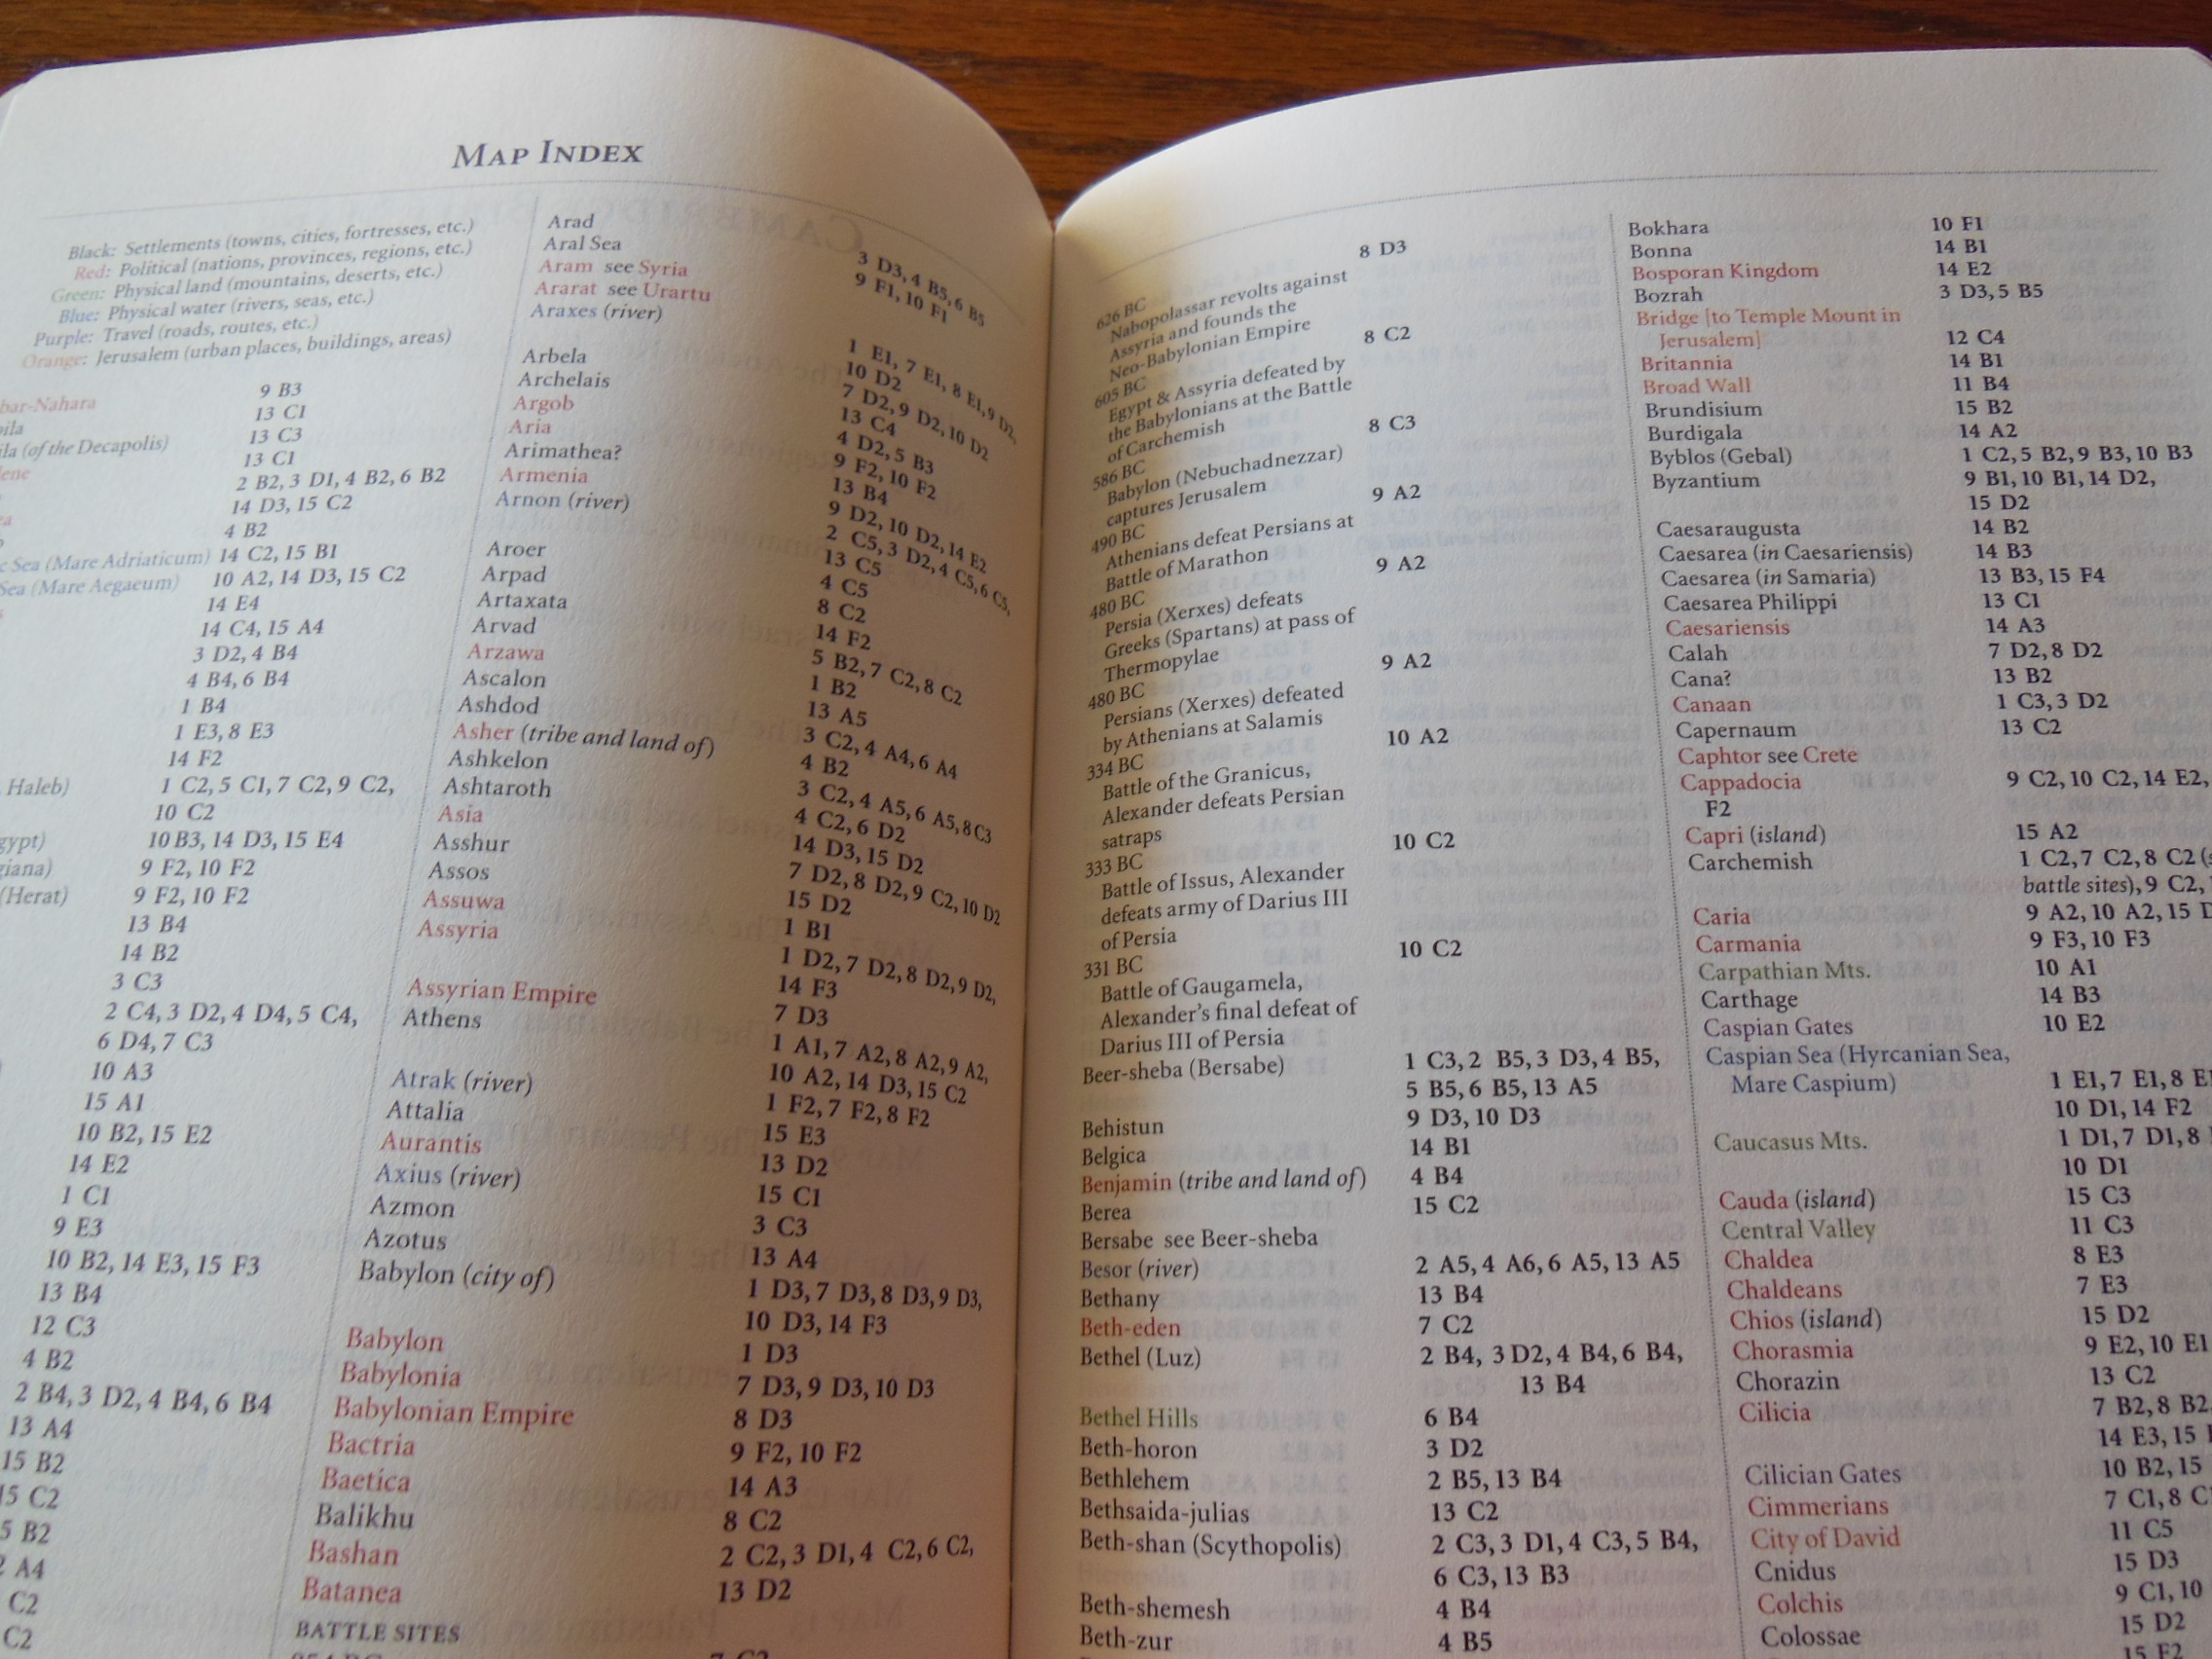 MAP INDEX
Black: Settlements (towns, cities, fortresses, etc.)
Red: Political (nations, provinces, regions, etc.)
Green: Physical land (mountains, deserts, etc.)
Blue: Physical water (rivers, seas, etc.)
Purple: Travel (roads, routes, etc.)
Orange: Jerusalem (urban places, buildings, areas)
bar-Nahara 9 B3
13 C1
(of the Decapolis) 13 C3
13 C1
2 B2, 3 D1, 4 B2, 6 B2
14 D3, 15 C2
4 B2
c Sea (Mare Adriaticum) 14 C2, 15 B1
Sea (Mare Aegaeum) 10 A2, 14 D3, 15 C2
14 E4
14 C4, 15 A4
3 D2, 4 B4
4 B4, 6 B4
1 B4
1 E3, 8 E3
14 F2
Haleb) 1 C2, 5 C1, 7 C2, 9 C2,
10 C2
gypt) 10 B3, 14 D3, 15 E4
giana) 9 F2, 10 F2
(Herat) 9 F2, 10 F2
13 B4
14 B2
3 C3
2 C4, 3 D2, 4 D4, 5 C4,
6 D4, 7 C3
10 A3
15 A1
10 B2, 15 E2
14 E2
1 C1
9 E3
10 B2, 14 E3, 15 F3
13 B4
12 C3
4 B2
2 B4, 3 D2, 4 B4, 6 B4
13 A4
15 B2
15 C2
5 B2
A4
C2
C2
Arad 3 D3, 4 B5, 6 B5
Aral Sea 9 F1, 10 F1
Aram see Syria
Ararat see Urartu
Araxes (river) 1 E1, 7 E1, 8 E1, 9 D2,
10 D2
Arbela 7 D2, 9 D2, 10 D2
Archelais 13 C4
Argob 4 D2, 5 B3
Aria 9 F2, 10 F2
Arimathea? 13 B4
Armenia 9 D2, 10 D2, 14 E2
Arnon (river) 2 C5, 3 D2, 4 C5, 6 C5,
13 C5
Aroer 4 C5
Arpad 8 C2
Artaxata 14 F2
Arvad 5 B2, 7 C2, 8 C2
Arzawa 1 B2
Ascalon 13 A5
Ashdod 3 C2, 4 A4, 6 A4
Asher (tribe and land of) 4 B2
Ashkelon 3 C2, 4 A5, 6 A5, 8 C3
Ashtaroth 4 C2, 6 D2
Asia 14 D3, 15 D2
Asshur 7 D2, 8 D2, 9 C2, 10 D2
Assos 15 D2
Assuwa 1 B1
Assyria 1 D2, 7 D2, 8 D2, 9 D2,
14 F3
Assyrian Empire 7 D3
Athens 1 A1, 7 A2, 8 A2, 9 A2,
10 A2, 14 D3, 15 C2
Atrak (river) 1 F2, 7 F2, 8 F2
Attalia 15 E3
Aurantis 13 D2
Axius (river) 15 C1
Azmon 3 C3
Azotus 13 A4
Babylon (city of) 1 D3, 7 D3, 8 D3, 9 D3,
10 D3, 14 F3
Babylon 1 D3
Babylonia 7 D3, 9 D3, 10 D3
Babylonian Empire 8 D3
Bactria 9 F2, 10 F2
Baetica 14 A3
Balikhu 8 C2
Bashan 2 C2, 3 D1, 4 C2, 6 C2,
Batanea 13 D2
BATTLE SITES
626 BC 8 D3
Nabopolassar revolts against
Assyria and founds the
Neo-Babylonian Empire
605 BC 8 C2
Egypt & Assyria defeated by
the Babylonians at the Battle
of Carchemish
586 BC 8 C3
Babylon (Nebuchadnezzar)
captures Jerusalem
490 BC 9 A2
Athenians defeat Persians at
Battle of Marathon
480 BC 9 A2
Persia (Xerxes) defeats
Greeks (Spartans) at pass of
Thermopylae
480 BC 9 A2
Persians (Xerxes) defeated
by Athenians at Salamis
334 BC 10 A2
Battle of the Granicus,
Alexander defeats Persian
satraps
333 BC 10 C2
Battle of Issus, Alexander
defeats army of Darius III
of Persia
331 BC 10 C2
Battle of Gaugamela,
Alexander's final defeat of
Darius III of Persia
Beer-sheba (Bersabe) 1 C3, 2 B5, 3 D3, 4 B5,
5 B5, 6 B5, 13 A5
Behistun 9 D3, 10 D3
Belgica 14 B1
Benjamin (tribe and land of) 4 B4
Berea 15 C2
Bersabe see Beer-sheba
Besor (river) 2 A5, 4 A6, 6 A5, 13 A5
Bethany 13 B4
Beth-eden 7 C2
Bethel (Luz) 2 B4, 3 D2, 4 B4, 6 B4,
13 B4
Bethel Hills 6 B4
Beth-horon 3 D2
Bethlehem 2 B5, 13 B4
Bethsaida-julias 13 C2
Beth-shan (Scythopolis) 2 C3, 3 D1, 4 C3, 5 B4,
6 C3, 13 B3
Beth-shemesh 4 B4
Beth-zur 4 B5
Bokhara 10 F1
Bonna 14 B1
Bosporan Kingdom 14 E2
Bozrah 3 D3, 5 B5
Bridge [to Temple Mount in
Jerusalem] 12 C4
Britannia 14 B1
Broad Wall 11 B4
Brundisium 15 B2
Burdigala 14 A2
Byblos (Gebal) 1 C2, 5 B2, 9 B3, 10 B3
Byzantium 9 B1, 10 B1, 14 D2,
15 D2
Caesaraugusta 14 B2
Caesarea (in Caesariensis) 14 B3
Caesarea (in Samaria) 13 B3, 15 F4
Caesarea Philippi 13 C1
Caesariensis 14 A3
Calah 7 D2, 8 D2
Cana? 13 B2
Canaan 1 C3, 3 D2
Capernaum 13 C2
Caphtor see Crete
Cappadocia 9 C2, 10 C2, 14 E2,
F2
Capri (island) 15 A2
Carchemish 1 C2, 7 C2, 8 C2
battle sites), 9 C2,
Caria 9 A2, 10 A2, 15
Carmania 9 F3, 10 F3
Carpathian Mts. 10 A1
Carthage 14 B3
Caspian Gates 10 E2
Caspian Sea (Hyrcanian Sea,
Mare Caspium) 1 E1, 7 E1, 8
10 D1, 14 F2
Caucasus Mts. 1 D1, 7 D1, 8
10 D1
Cauda (island) 15 C3
Central Valley 11 C3
Chaldea 8 E3
Chaldeans 7 E3
Chios (island) 15 D2
Chorasmia 9 E2, 10 E1
Chorazin 13 C2
Cilicia 7 B2, 8 B2
14 E3, 15
Cilician Gates 10 B2, 15
Cimmerians 7 C1, 8
City of David 11 C5
Cnidus 15 D3
Colchis 9 C1, 10
Colossae 15 D2